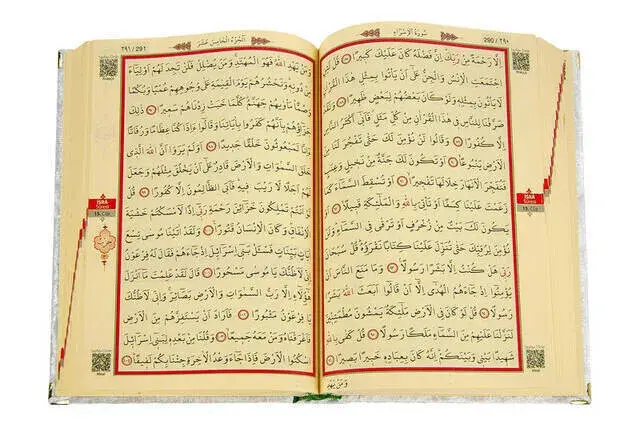 سُورَةُ الْاِسْرَاءِ
290 / ٢٩٠
اِلَّا رَحْمَةً مِنْ رَبِّكَ اِنَّ فَضْلَهُ كَانَ عَلَيْكَ كَبِيرًا ﴿٨٧﴾ قُلْ لَئِنِ
اجْتَمَعَتِ الْاِنْسُ وَالْجِنُّ عَلٰٓى اَنْ يَأْتُوا بِمِثْلِ هٰذَا الْقُرْاٰنِ
لَا يَأْتُونَ بِمِثْلِهِ وَلَوْ كَانَ بَعْضُهُمْ لِبَعْضٍ ظَهِيرًا ﴿٨٨﴾ وَلَقَدْ
صَرَّفْنَا لِلنَّاسِ فِى هٰذَا الْقُرْاٰنِ مِنْ كُلِّ مَثَلٍ فَاَبٰٓى اَكْثَرُ النَّاسِ
اِلَّا كُفُورًا ﴿٨٩﴾ وَقَالُوا لَنْ نُؤْمِنَ لَكَ حَتّٰى تَفْجُرَ لَنَا مِنَ
الْاَرْضِ يَنْبُوعًا ﴿٩٠﴾ اَوْ تَكُونَ لَكَ جَنَّةٌ مِنْ نَخِيلٍ وَعِنَبٍ
فَتُفَجِّرَ الْاَنْهَارَ خِلَالَهَا تَفْجِيرًا ﴿٩١﴾ اَوْ تُسْقِطَ السَّمَاءَ كَمَا
زَعَمْتَ عَلَيْنَا كِسَفًا اَوْ تَأْتِىَ بِاللّٰهِ وَالْمَلٰئِكَةِ قَبِيلًا ﴿٩٢﴾ اَوْ
يَكُونَ لَكَ بَيْتٌ مِنْ زُخْرُفٍ اَوْ تَرْقٰى فِى السَّمَاءِ وَلَنْ
نُؤْمِنَ لِرُقِيِّكَ حَتّٰى تُنَزِّلَ عَلَيْنَا كِتَابًا نَقْرَؤُهُ قُلْ سُبْحَانَ
رَبِّى هَلْ كُنْتُ اِلَّا بَشَرًا رَسُولًا ﴿٩٣﴾ وَمَا مَنَعَ النَّاسَ اَنْ
يُؤْمِنُوا اِذْ جَاءَهُمُ الْهُدٰى اِلَّا اَنْ قَالُوا اَبَعَثَ اللّٰهُ بَشَرًا
رَسُولًا ﴿٩٤﴾ قُلْ لَوْ كَانَ فِى الْاَرْضِ مَلٰئِكَةٌ يَمْشُونَ مُطْمَئِنِّينَ
لَنَزَّلْنَا عَلَيْهِمْ مِنَ السَّمَاءِ مَلَكًا رَسُولًا ﴿٩٥﴾ قُلْ كَفٰى بِاللّٰهِ
شَهِيدًا بَيْنِى وَبَيْنَكُمْ اِنَّهُ كَانَ بِعِبَادِهِ خَبِيرًا بَصِيرًا ﴿٩٦﴾
وَمَنْ يَهْدِ
İSRA
Sûresi
15. Cüz
٢٩١ / 291
اَلْجُزْءُ الْخَامِسَ عَشَرَ
وَمَنْ يَهْدِ اللّٰهُ فَهُوَ الْمُهْتَدِ وَمَنْ يُضْلِلْ فَلَنْ تَجِدَ لَهُمْ اَوْلِيَاءَ
مِنْ دُونِهِ وَنَحْشُرُهُمْ يَوْمَ الْقِيٰمَةِ عَلٰى وُجُوهِهِمْ عُمْيًا وَبُكْمًا
وَصُمًّا مَأْوٰيهُمْ جَهَنَّمُ كُلَّمَا خَبَتْ زِدْنَاهُمْ سَعِيرًا ﴿٩٧﴾ ذٰلِكَ
جَزَاؤُهُمْ بِاَنَّهُمْ كَفَرُوا بِاٰيَاتِنَا وَقَالُوا ءَاِذَا كُنَّا عِظَامًا وَرُفَاتًا
ءَاِنَّا لَمَبْعُوثُونَ خَلْقًا جَدِيدًا ﴿٩٨﴾ اَوَلَمْ يَرَوْا اَنَّ اللّٰهَ الَّذِى
خَلَقَ السَّمٰوَاتِ وَالْاَرْضَ قَادِرٌ عَلٰٓى اَنْ يَخْلُقَ مِثْلَهُمْ وَجَعَلَ
لَهُمْ اَجَلًا لَا رَيْبَ فِيهِ فَاَبَى الظَّالِمُونَ اِلَّا كُفُورًا ﴿٩٩﴾ قُلْ
لَوْ اَنْتُمْ تَمْلِكُونَ خَزَائِنَ رَحْمَةِ رَبِّى اِذًا لَاَمْسَكْتُمْ خَشْيَةَ
الْاِنْفَاقِ وَكَانَ الْاِنْسَانُ قَتُورًا ﴿١٠٠﴾ وَلَقَدْ اٰتَيْنَا مُوسٰى تِسْعَ
اٰيَاتٍ بَيِّنَاتٍ فَسْـَٔلْ بَنِٓى اِسْرَائِيلَ اِذْ جَاءَهُمْ فَقَالَ لَهُ فِرْعَوْنُ
اِنِّى لَاَظُنُّكَ يَا مُوسٰى مَسْحُورًا ﴿١٠١﴾ قَالَ لَقَدْ عَلِمْتَ مَا اَنْزَلَ
هٰٓؤُلَاءِ اِلَّا رَبُّ السَّمٰوَاتِ وَالْاَرْضِ بَصَائِرَ وَاِنِّى لَاَظُنُّكَ
يَا فِرْعَوْنُ مَثْبُورًا ﴿١٠٢﴾ فَاَرَادَ اَنْ يَسْتَفِزَّهُمْ مِنَ الْاَرْضِ
فَاَغْرَقْنَاهُ وَمَنْ مَعَهُ جَمِيعًا ﴿١٠٣﴾ وَقُلْنَا مِنْ بَعْدِهِ لِبَنِٓى اِسْرَائِيلَ
اسْكُنُوا الْاَرْضَ فَاِذَا جَاءَ وَعْدُ الْاٰخِرَةِ جِئْنَا بِكُمْ لَفِيفًا ﴿١٠٤﴾
İSRA
Sûresi
15. Cüz
حزب